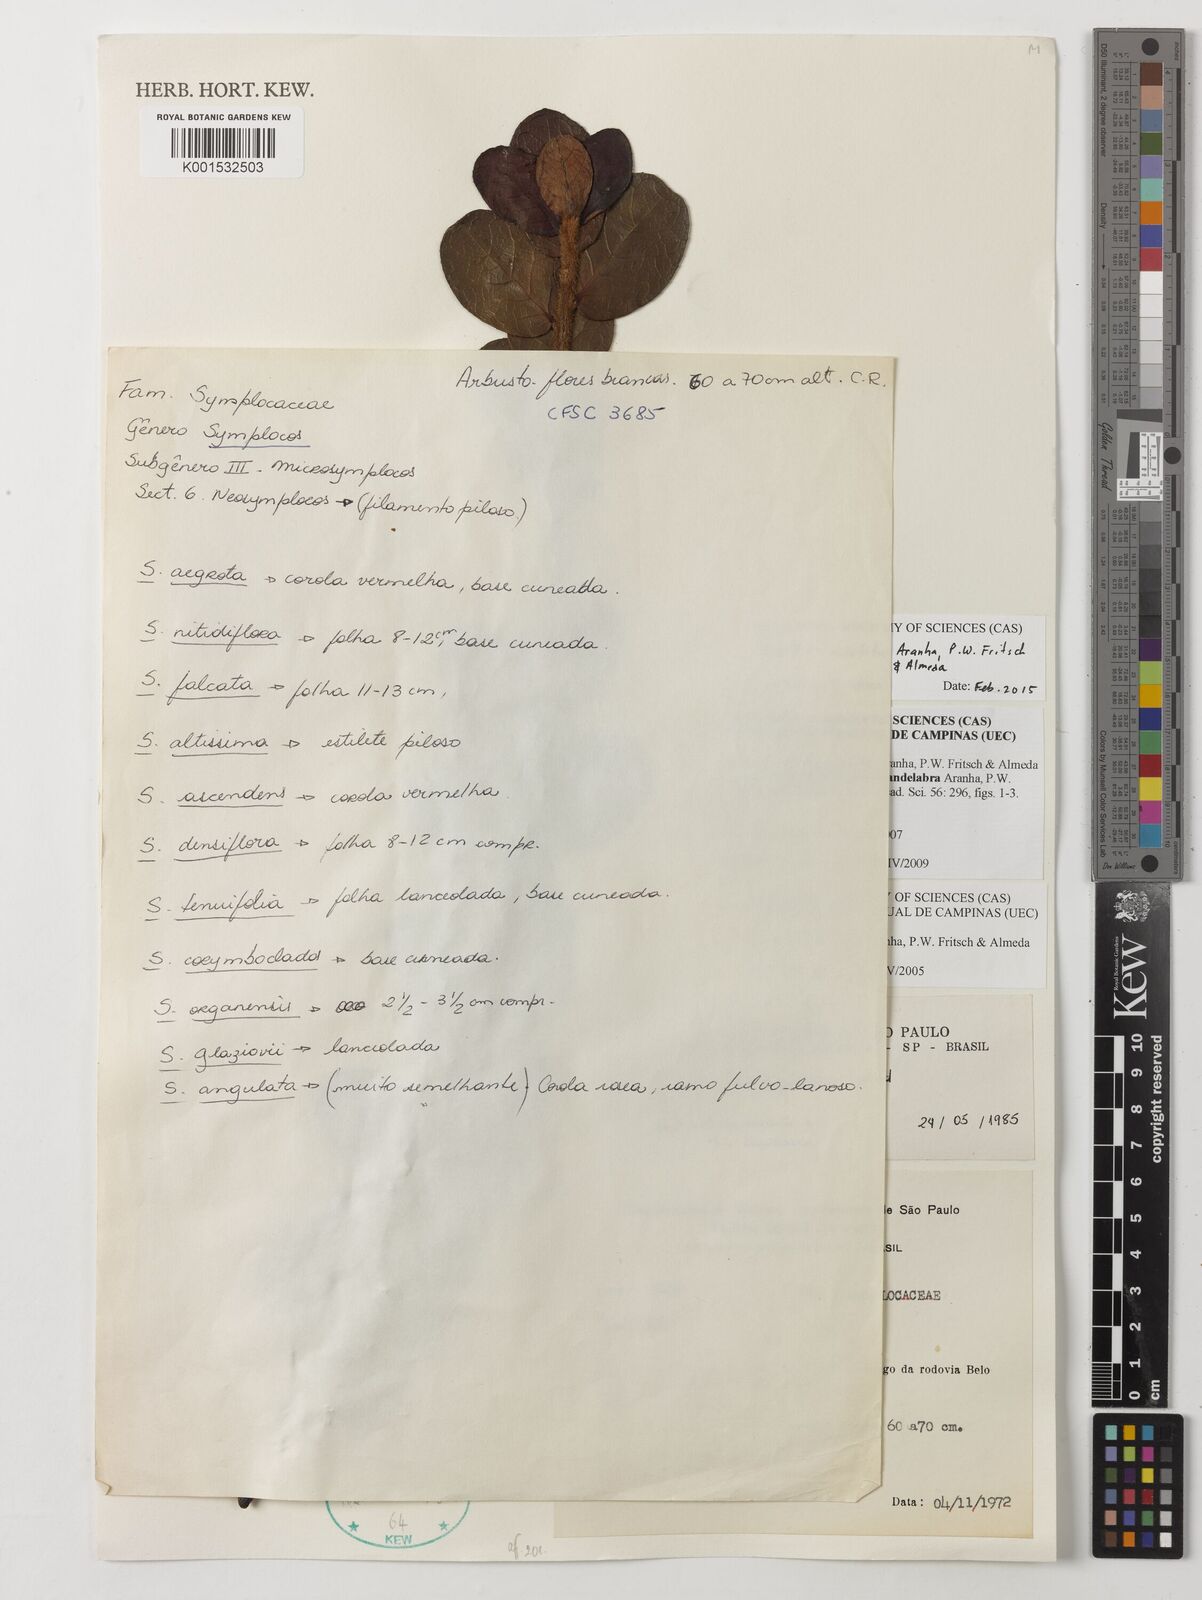 M
HERB. HORT. KEW.
ROYAL BOTANIC GARDENS KEW
K001532503
Arbusto - flores brancas. 60 a 70 cm alt. C.R.
CFSC 3685
Fam. Symplocaceae
Gênero Symplocos
Subgênero III - Microsymplocos
Sect. 6. Neosymplocos → (filamento piloso)
S. aegrota → corola vermelha, base cuneada.
S. nitidiflora → folha 8-12 cm, base cuneada.
S. falcata → folha 11-13 cm,
S. altissima → estilete piloso
S. ascendens → corola vermelha.
S. densiflora → folha 8-12 cm compr.
S. tenuifolia → folha lanceolada, base cuneada.
S. corymboclados → base cuneada.
S. organensis → 2 1/2 - 3 1/2 cm compr.
S. glaziovii → lanceolada
S. angulata → (muito semelhante) Corola rosea, ramo fulvo-lanoso.
Y OF SCIENCES (CAS)
Aranha, P.W. Fritsch
& Almeda
Date: Feb. 2015
SCIENCES (CAS)
DE CAMPINAS (UEC)
ranha, P.W. Fritsch & Almeda
andelabra Aranha, P.W.
ad. Sci. 56: 296, figs. 1-3.
07
IV/2009
Y OF SCIENCES (CAS)
UAL DE CAMPINAS (UEC)
nha, P.W. Fritsch & Almeda
V/2005
O PAULO
- SP - BRASIL
29/05/1985
de São Paulo
SIL
LOCACEAE
go da rodovia Belo
60 a70 cm.
Data: 04/11/1972
64
KEW
D50 Illuminant, 2 degree observer
Density
Golden Thread
Colors by Munsell Color Services Lab
inches
centimetres
Royal Botanic Gardens
Kew
0 1 2 3 4 5 6 7 8 9 10
cm
copyright reserved